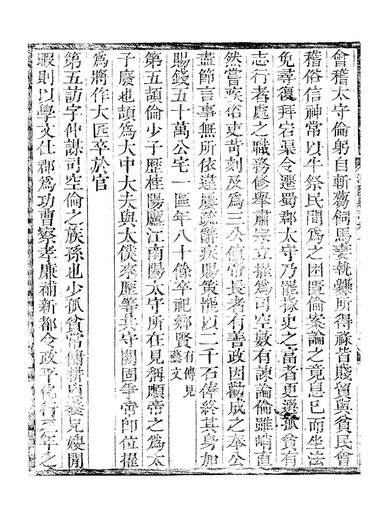 會稽太守倫躬自斬芻飼馬妻執爨所得祿皆賤貿與貧民會
稽俗信神常以牛祭民閒爲之困匱倫案論之竟息已而坐法
免尋復拜宕渠令遷蜀郡太守乃罷掾史之富者更選孤貧有
志行者處之職務修舉肅宗立擢爲司空數有諫論倫雖峭直
然嘗疾俗吏苛刻及爲三公值帝長者有善政因勸成之奉公
盡節言事無所依違屢疏辭疾賜策罷以二千石俸終其身加
賜錢五十萬公宅一區年八十餘卒祀鄉賢有傳見藝文
第五頡倫少子歷桂陽廬江南陽太守所在見稱順帝之爲太
子廢也頡爲大中大夫與太僕來歷等共守闕固爭帝卽位擢
爲將作大匠卒於官
第五訪字仲謀司空倫之族孫也少孤貧常傭耕以養兄嫂閒
暇則以學文仕郡爲功曹察孝廉補新都令政平化行三年之